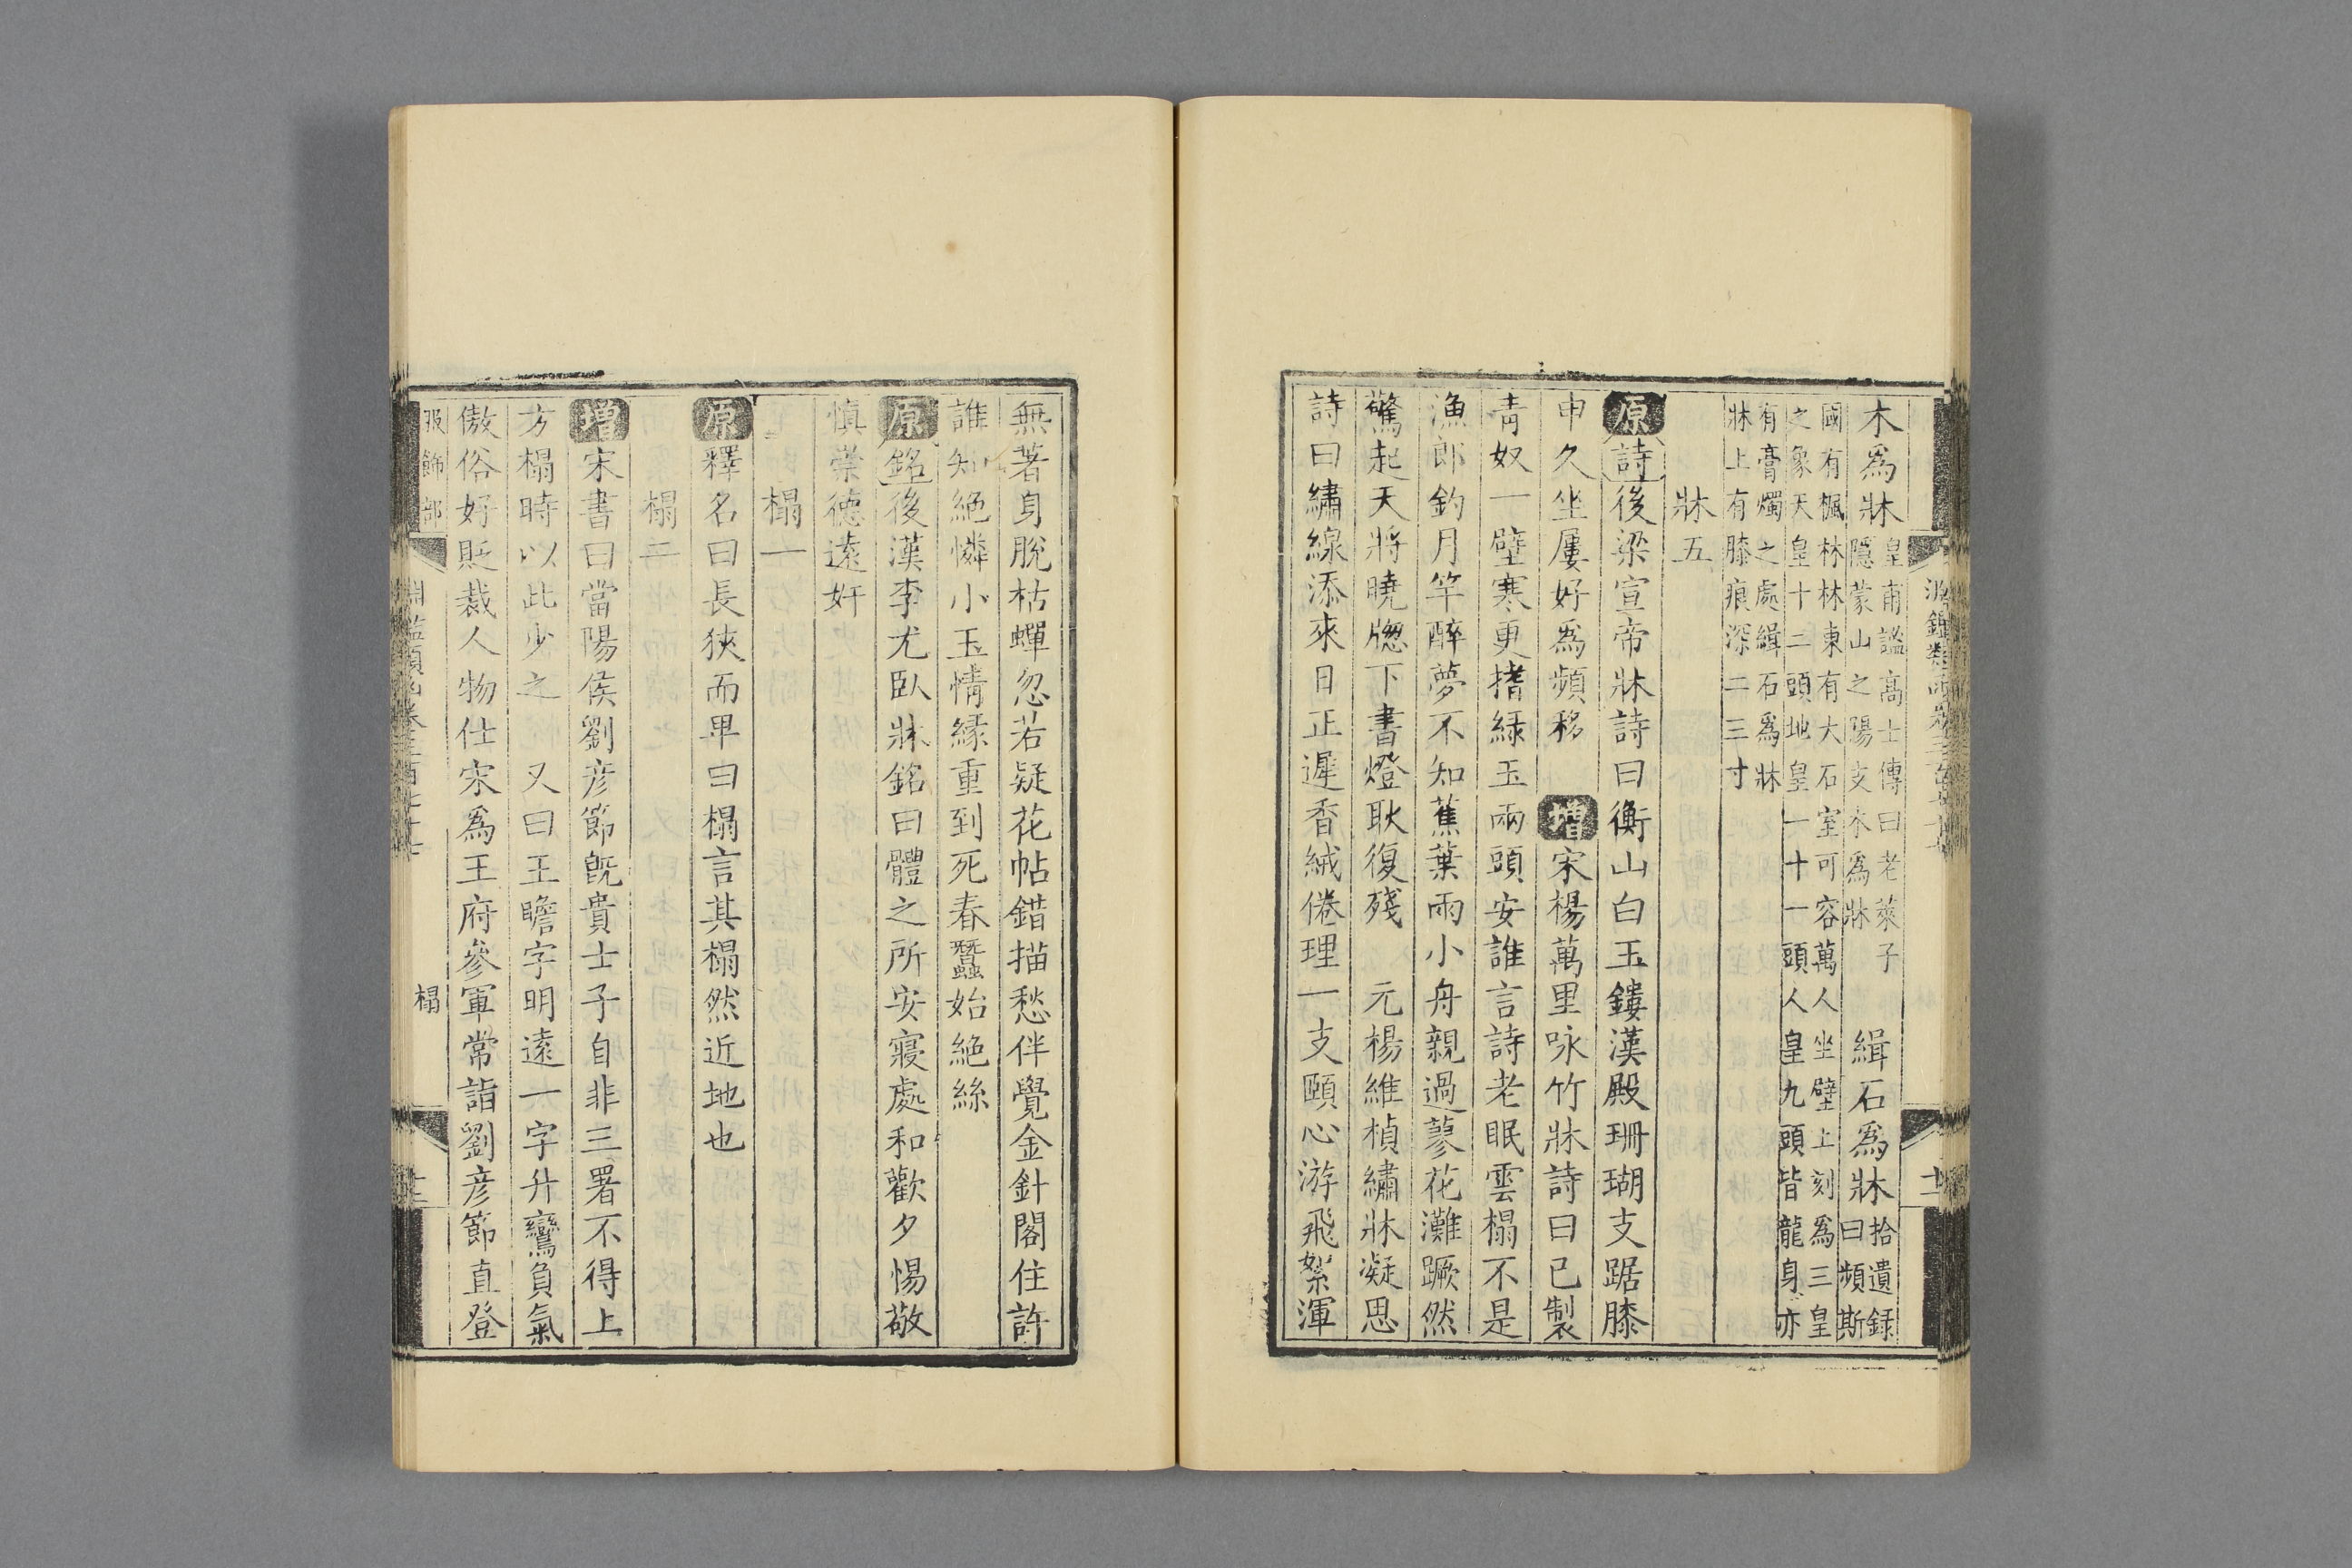 木爲牀皇甫謐高士傳曰老萊子隱蒙山之陽支木爲牀 緝石爲牀拾遺録曰頻斯
國有楓林林東有大石室可容萬人坐壁上刻爲三皇之象天皇十二頭地皇一十一頭人皇九頭皆龍身亦
有膏燭之處緝石爲牀牀上有膝痕深二三寸
牀五
原詩後梁宣帝牀詩曰衡山白玉鏤漢殿珊瑚支踞膝
申久坐屢好爲頻移 增宋楊萬里咏竹牀詩曰已製
青奴一壁寒更搘緑玉兩頭安誰言詩老眠雲榻不是
漁郎釣月竿醉夢不知蕉葉雨小舟親過蓼花灘蹶然
驚起天將曉牕下書燈耿復殘 元楊維楨繡牀凝思
詩曰繡線添來日正遲香絨倦理一支頤心游飛絮渾
無著身脫枯蟬忽若疑花帖錯描愁伴覺金針閣住許
誰知絕憐小玉情緣重到死春蠶始絕絲
原銘後漢李尤臥牀銘曰體之所安寢處和歡夕惕敬
慎崇德遠奸
榻一
原釋名曰長狹而卑曰榻言其榻然近地也
榻二
增宋書曰當陽侯劉彦節旣貴士子自非三署不得上
方榻時以此少之 又曰王瞻字明遠一字升鸞負氣
傲俗好貶裁人物仕宋爲王府參軍常詣劉彦節直登
服飾部
淵鑑類函卷三百七十七
榻
十二